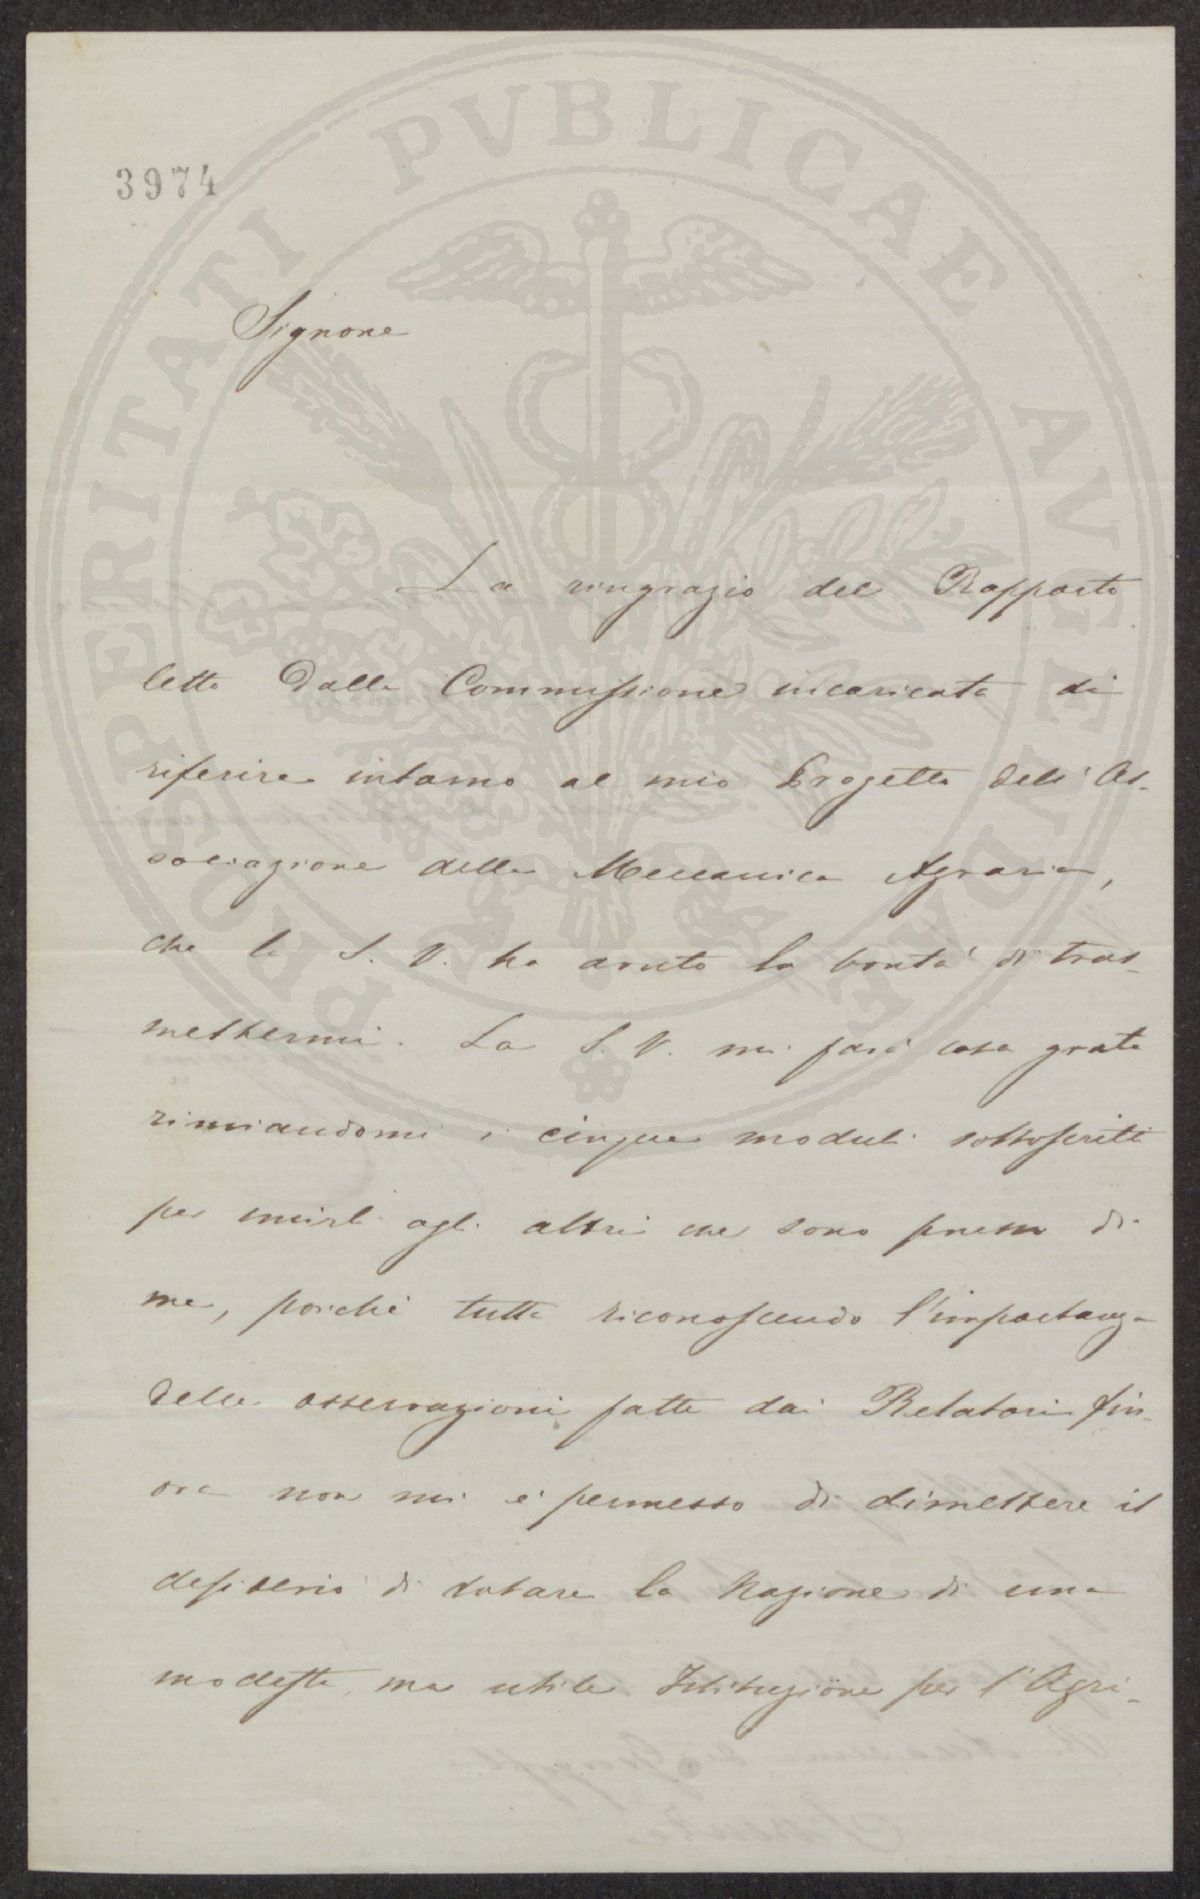 PROSPERITATI PVBLICAE AVGENDAE
3974
Signore
La ringrazio del Rapporto
letto dalla Commissione incaricata di
riferire intorno al mio Progetto dell'As-
sociazione della Meccanica Agraria,
che la S. V. ha avuto la bontà di tras-
mettermi. La S. V. mi farà cosa grata
rinviandomi i cinque moduli sottoscritti
per unirli agli altri che sono presso di
me, poichè tutta riconoscendo l'importanza
delle osservazioni fatte dai Relatori fin-
ora non mi è permesso di dimettere il
desiderio di dotare la Nazione di una
modesta, ma utile Istituzione per l'Agri-